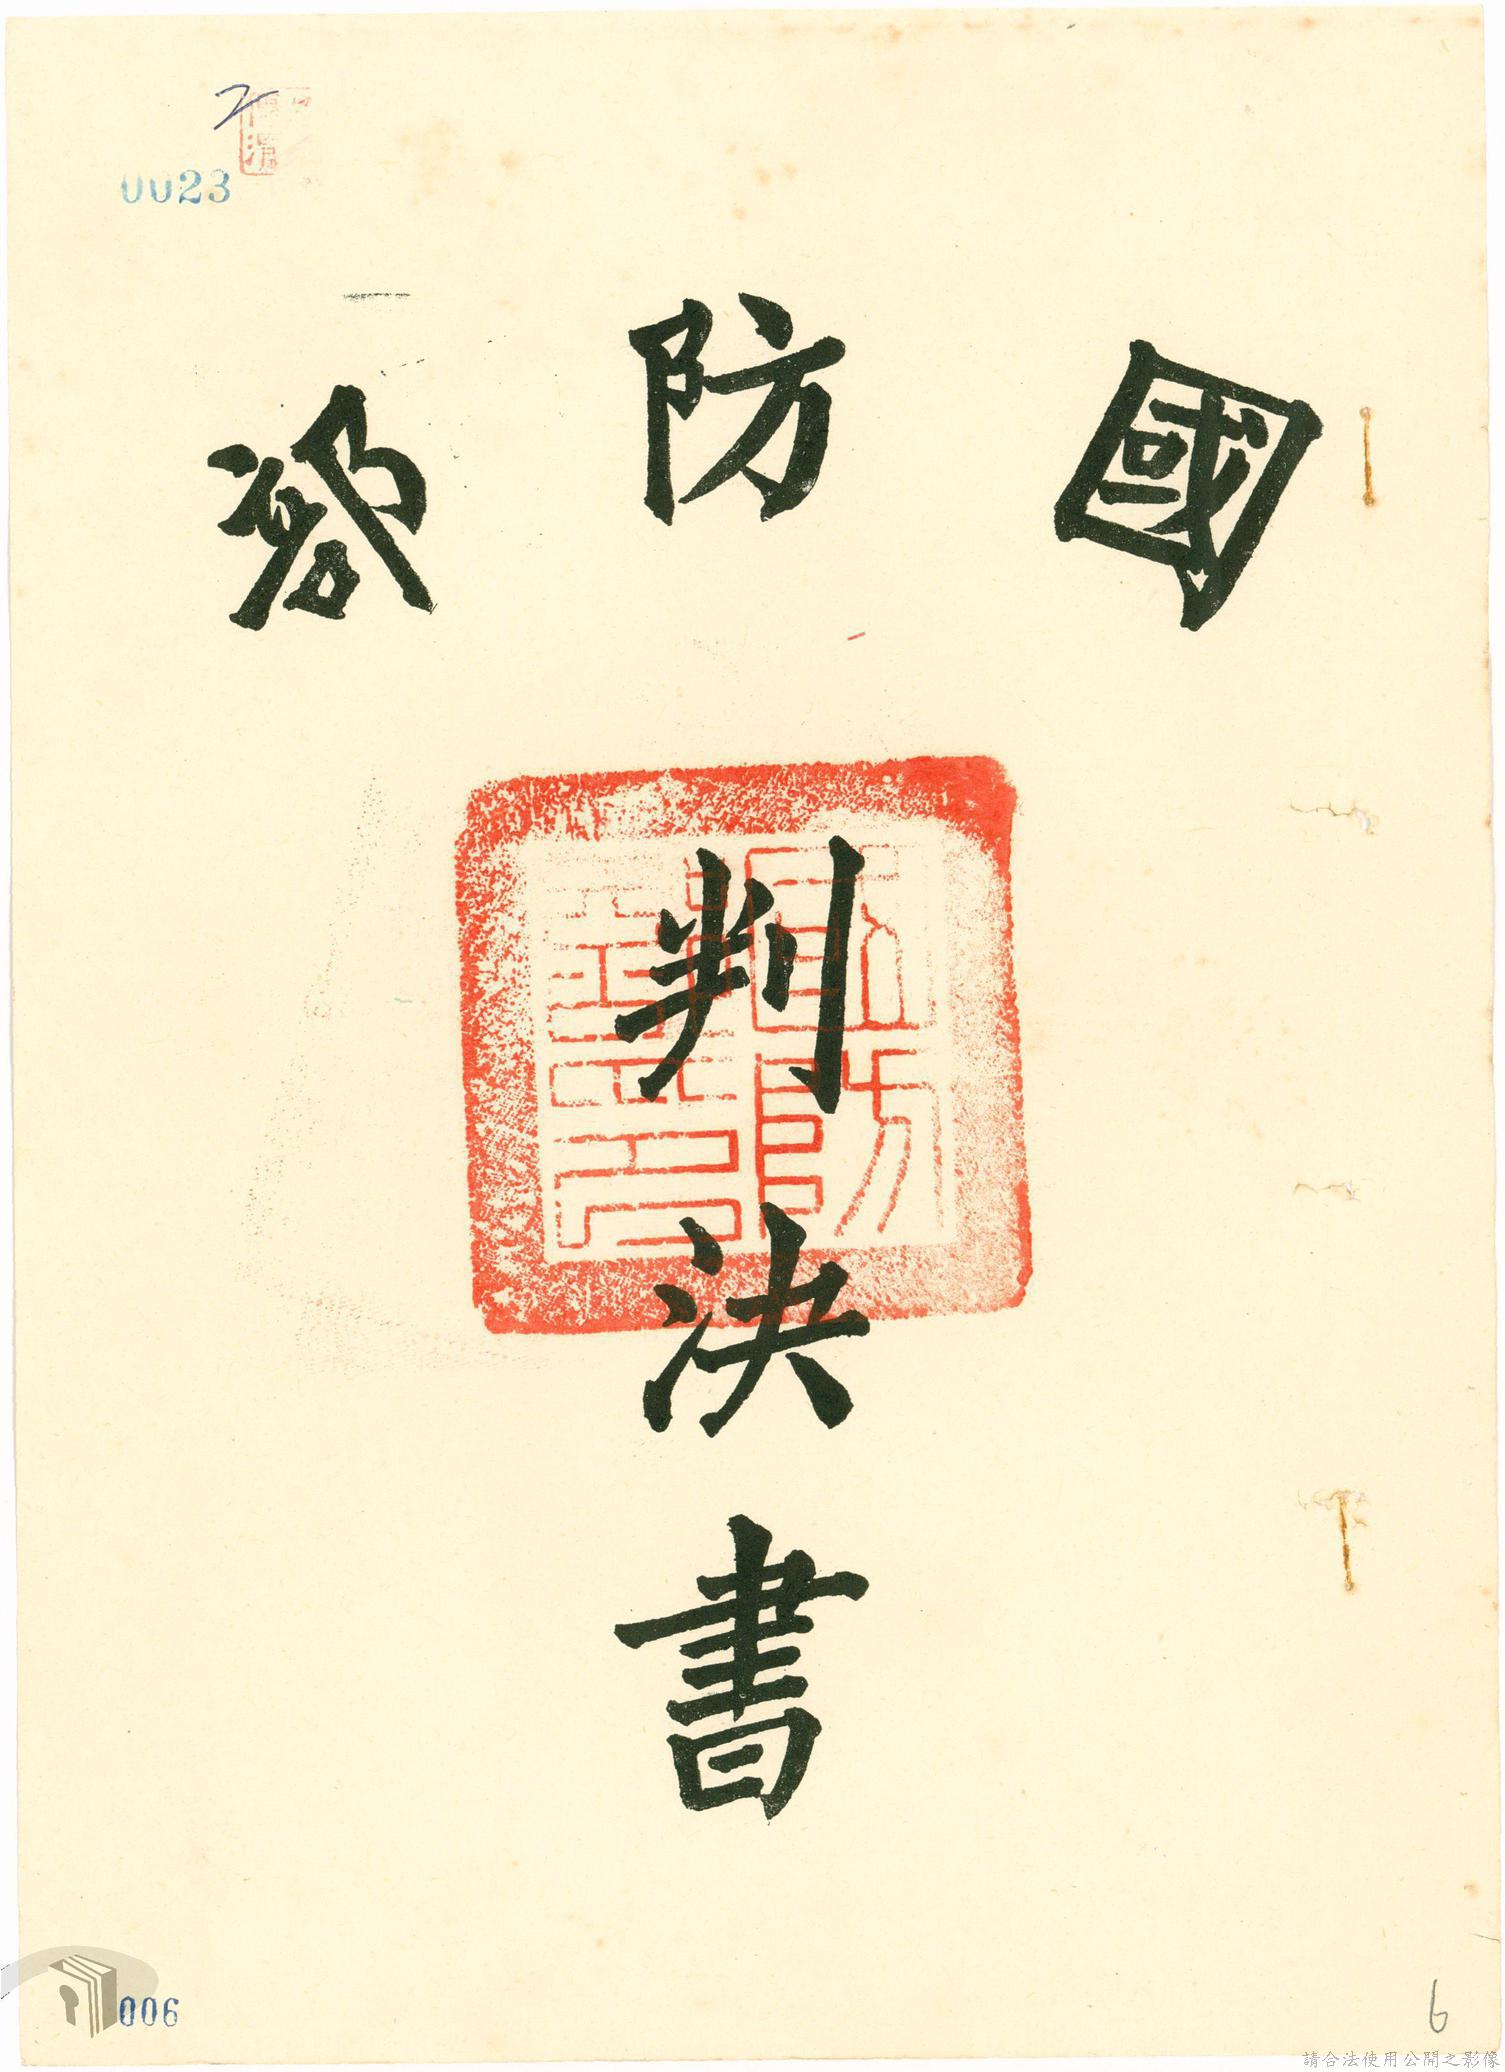 2
0023
國防部
判決書
006
6
請合法使用公開之影像